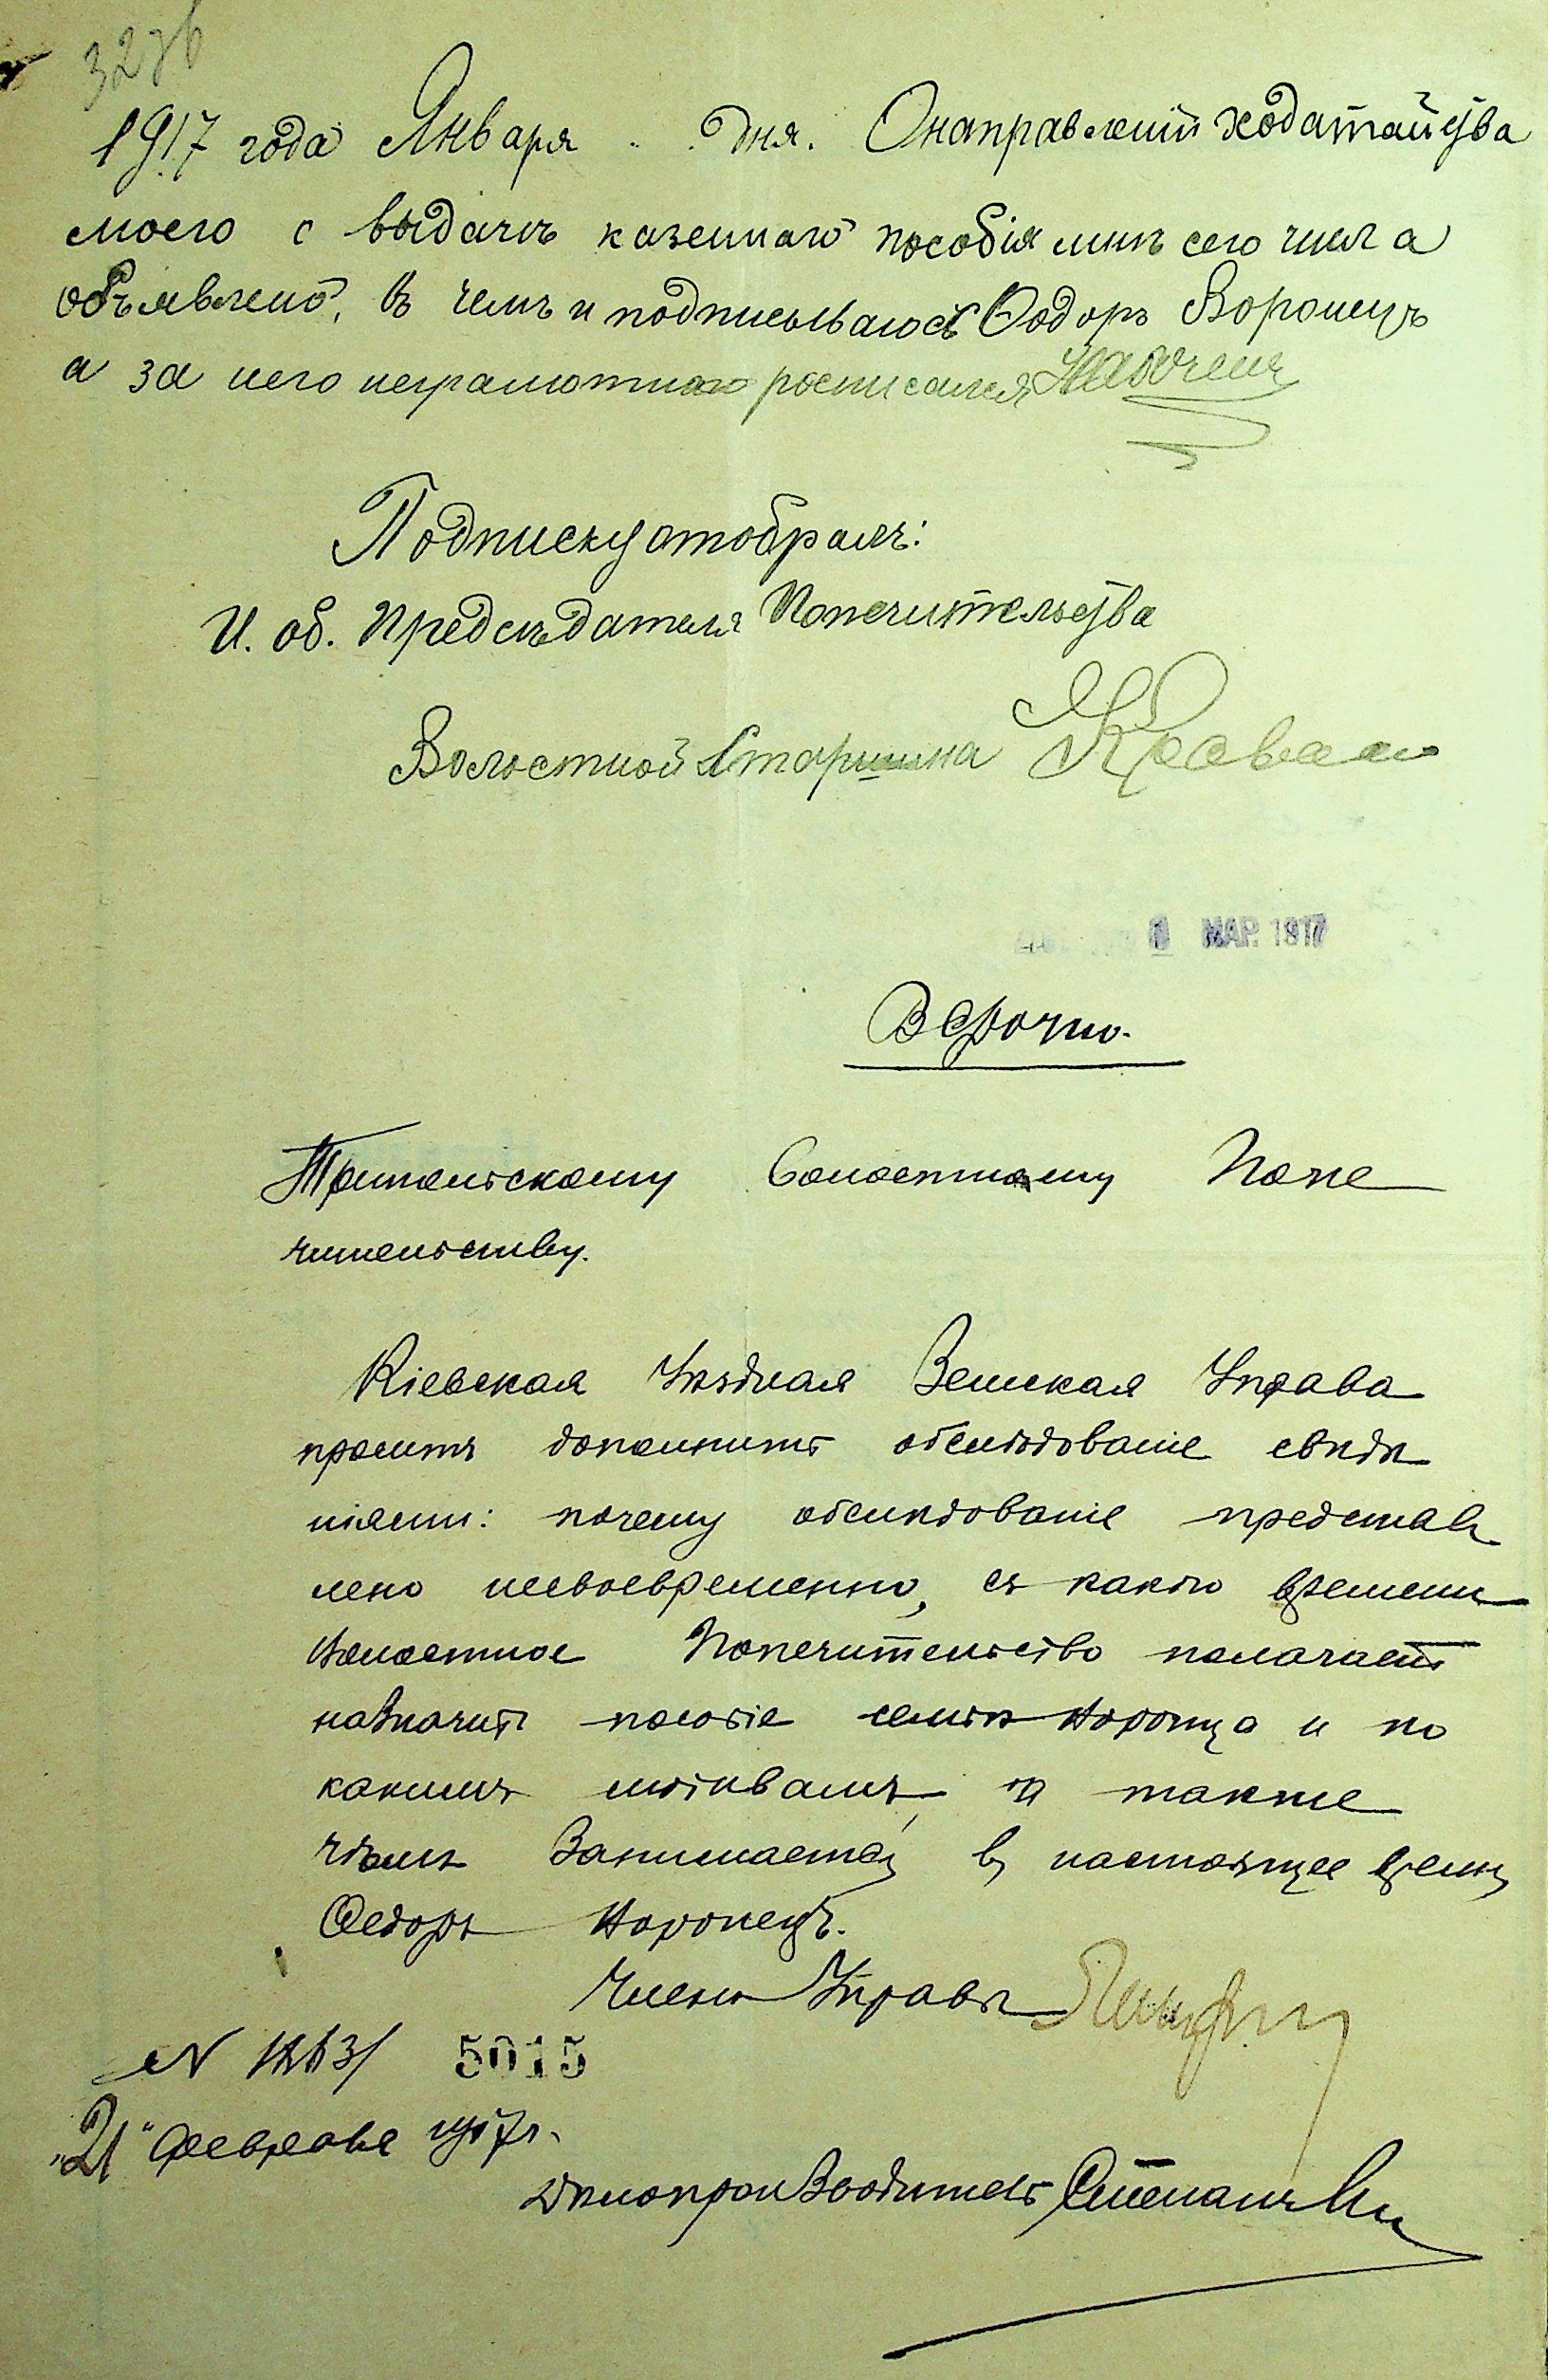 1917 года Января . . дня. О направленіи ходатайства
моего о выдачѣ казеннаго пособія мнѣ сего числа
объявлено, въ чемъ и подписываюсь Ѳодоръ Воронецъ
а за него неграмотнаго росписался
Подписку отобралъ:
И. об. Предсѣдателя Попечительства
Волостной Старшина
1 МАР. 1917
Всрочно.
Трипольскому Волостному Попе
чительству.
Кіевская Уѣздная Земская Управа
проситъ дополнить обслѣдованіе свѣдѣ
ніями: почему обслѣдованіе представ
лено несвоевременно, съ какого времени
Волостное Попечительство полагаетъ
назначить пособіе семьѣ Воронца и по
какимъ мотивамъ, а также
чѣмъ занимается въ настоящее время
Ѳедоръ Воронецъ.
Членъ Управы
N 1263/ 5015
"21" Февраля 1917 г.
Дѣлопроизводитель